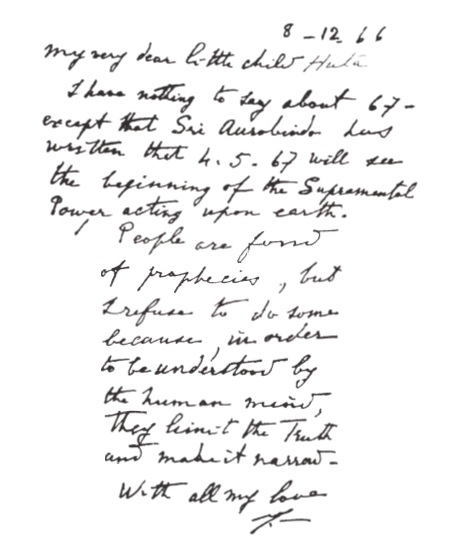 8-12.66
My very dear little child Huta
I have nothing to say about 67-
except that Sri Aurobindo has
written that 4.5.67 will see
the beginning of the Supramental
Power acting upon earth.
People are fond
of prophecies, but
I refuse to do some
because, in order
to be understood by
the human mind,
they limit the Truth
and make it narrow-
With all my love